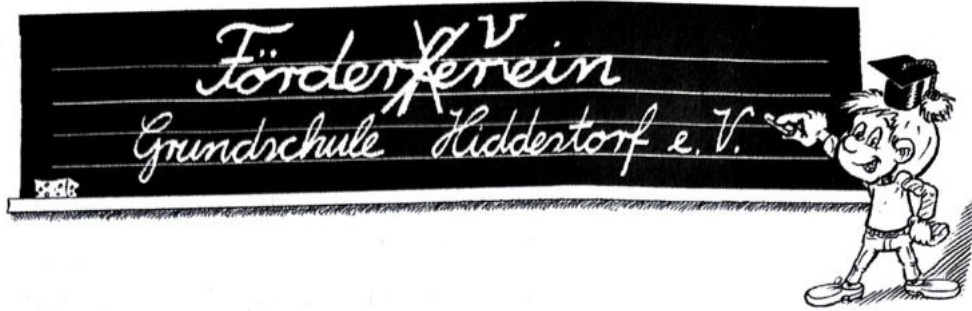 Förderfverein
Grundschule Hiddestorf e. V.